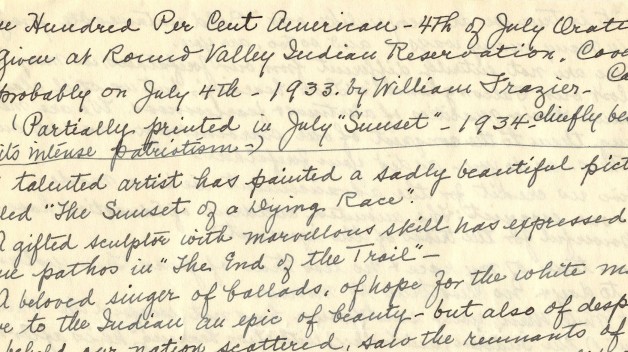 e Hundred Per Cent American - 4th of July Orat
Given at Round Valley Indian Reservation, Cov
Ca
probably on July 4th - 1933. by William Frazier -
(Partially printed in July "Sunset" - 1934 - chiefly be
its intense patriotism -)
talented artist has painted a sadly beautiful pict
led "The Sunset of a Dying Race".
A gifted sculptor with marvellous skill has expressed
ue pathos in "The End of the Trail" -
A beloved singer of ballads, of hope for the white m
ve to the Indian an epic of beauty - but also of desp
beheld our nation scattered, saw the remnants of